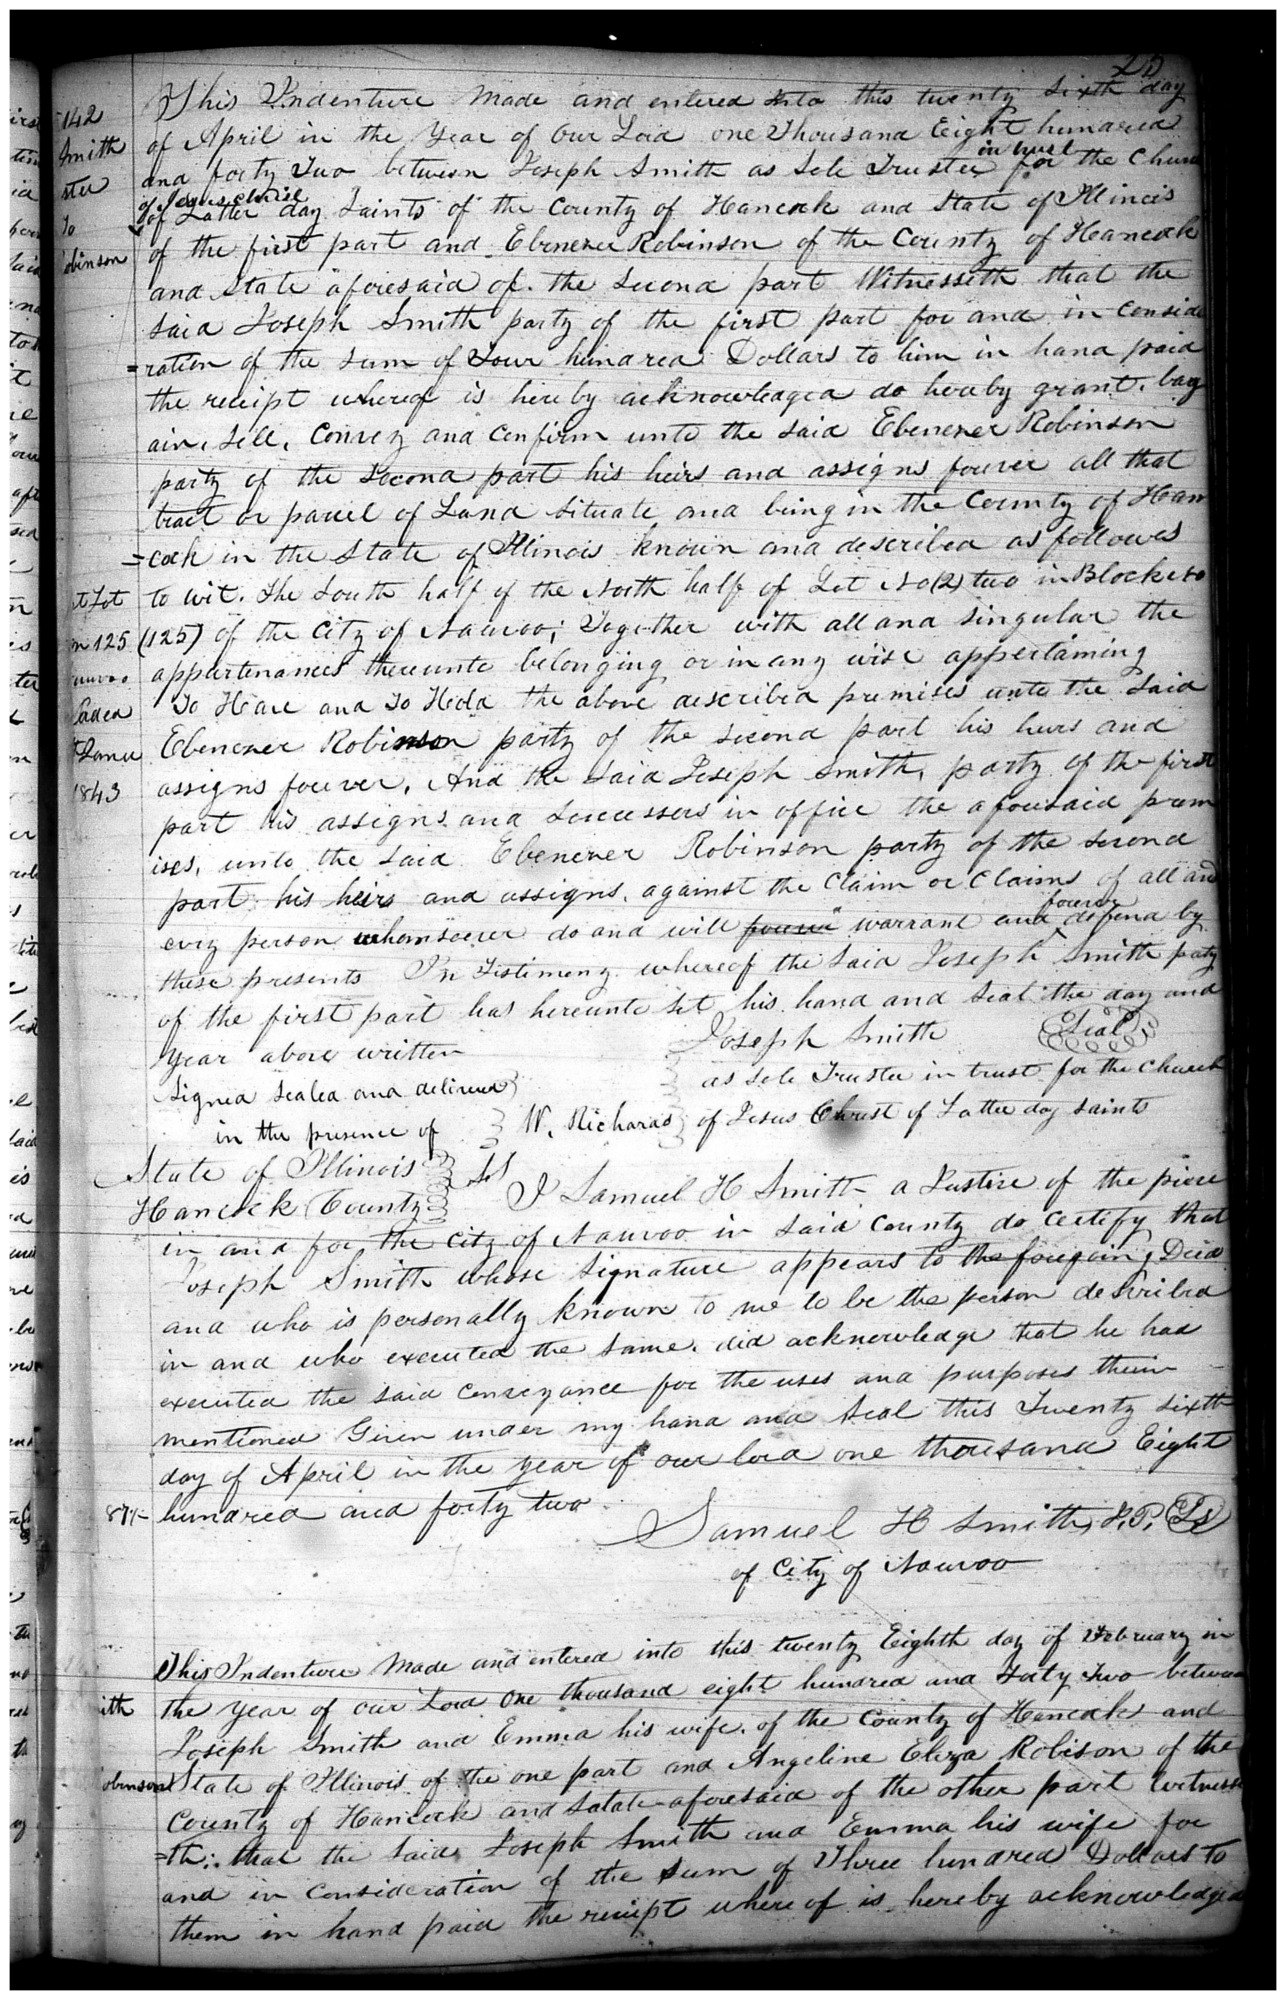 This Indenture Made and entered into this twenty sixth day
of April in the Year of Our Lord one Thousand Eight hundred
in trust
and forty Two between Joseph Smith as Sole Trustee for the Church
of Jesus Christ
of Latter day Saints of the County of Hancock and State of Illinois
of the first part and Ebenezer Robinson of the County of Hancock
and State aforesaid of the second part Witnesseth that the
said Joseph Smith party of the first part for and in conside
=ration of the sum of Four hundred Dollars to him in hand paid
the receipt whereof is hereby acknowledged do hereby grant, barg
ain, sell, Convey and Confirm unto the said Ebenezer Robinson
party of the second part his heirs and assigns forever all that
tract or parcel of Land situate and being in the County of Han
=cock in the State of Illinois known and described as followes
to wit. The South half of the North half of Lot No (2) two in Block No
(125) of the City of Nauvoo; Together with all and singular the
appurtenances thereunto belonging or in any wise appertaining
To Have and To Hold the above described premises unto the said
Ebenezer Robinson party of the second part his heirs and
assigns forever. And the said Joseph Smith, party of the first
part his assigns and successors in office the aforesaid prem
ises, unto the said Ebenezer Robinson party of the second
part his heirs and assigns, against the Claim or Claims of all and
forever
every person whomsoever do and will forever warrant and defend by
these presents In Testimony whereof the said Joseph Smith party
of the first part has hereunto set his hand and seal the day and
year above written Joseph Smith Seal
Signed sealed and delivered as Sole Trustee in trust for the Church
in the presence of W. Richards of Jesus Christ of Latter day Saints
State of Illinois
Hancock County Ss I Samuel H Smith a Justice of the piece
in and for the City of Nauvoo in said County do certify that
Joseph Smith whose signature appears to the foregoing Deed
and who is personally known to me to be the person described
in and who executed the same. did acknowledge that he had
executed the said conveyance for the uses and purposes therein
mentioned Given under my hand and seal this Twenty sixth
day of April in the year of our lord one thousand Eight
hundred and forty two
Samuel H Smith, J.P. Ls
of City of Nauvoo
This Indenture Made and entered into this twenty Eighth day of February in
the year of our Lord One thousand eight hundred and Forty Two between
Joseph Smith and Emma his wife. of the County of Hancock and
State of Illinois of the one part and Angeline Eliza Robison of the
County of Hancock and Satate aforesaid of the other part Witnesse
=th: that the said Joseph Smith and Emma his wife for
and in Consideration of the sum of Three hundred Dollars to
them in hand paid the reciept where of is hereby acknowledged
142
Smith
To
obinson
Lot
125
1843